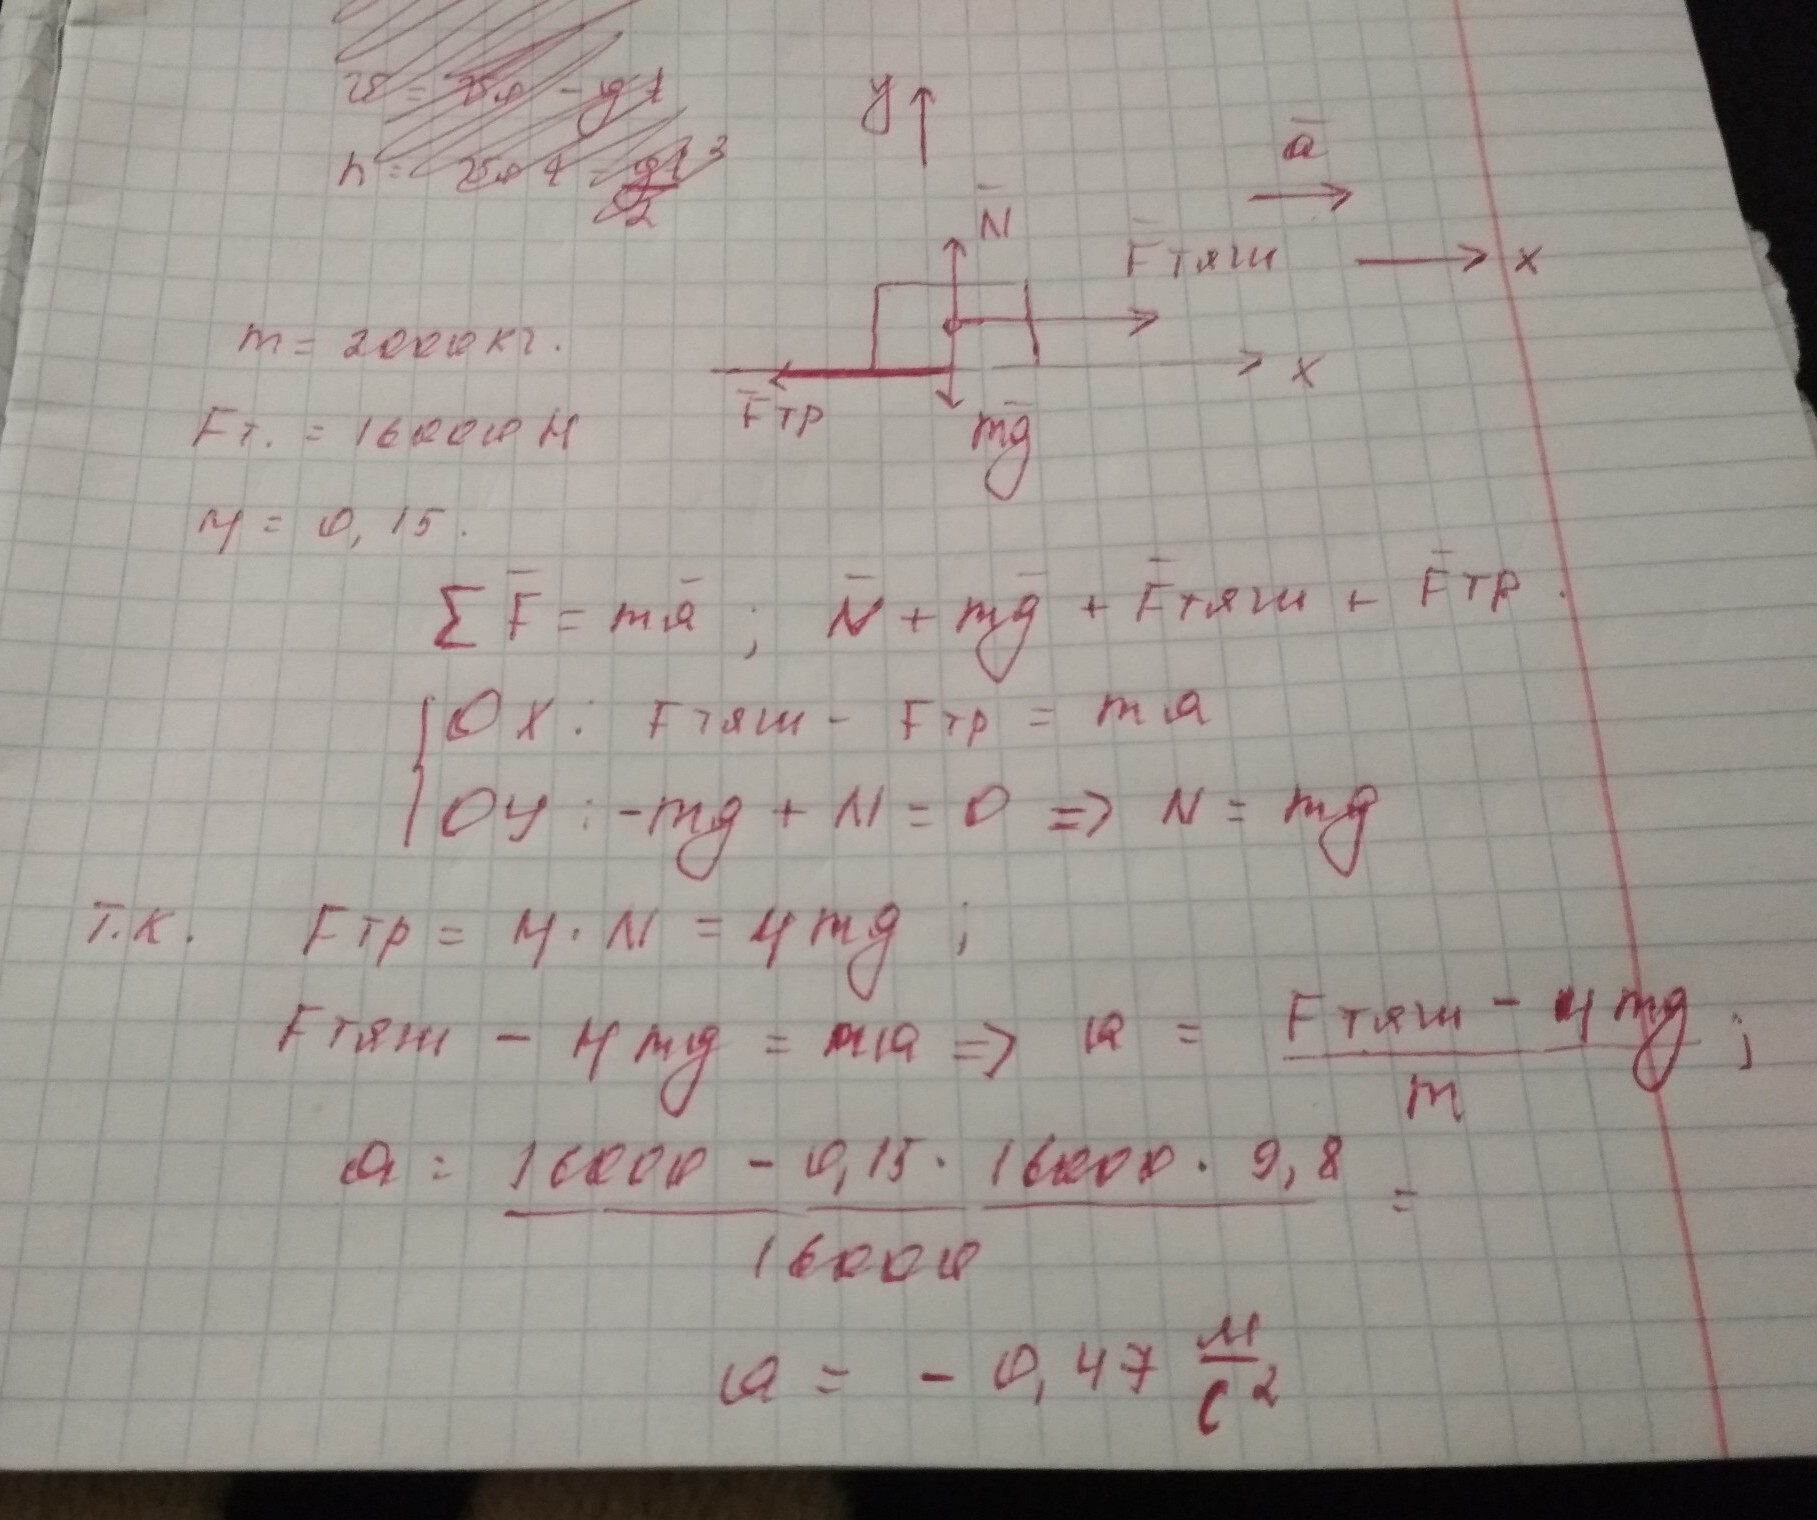 v = v₀ - gt
h = v₀t - gt²/2
y
a̅
N̅
F̅тяги
x
m = 2000кг.
x
F̅тр
mg̅
Fт. = 16000Н
μ = 0,15.
∑F̅ = ma̅ ; N̅ + mg̅ + F̅тяги + F̅тр.
OX: Fтяги - Fтр = ma
OY: -mg + N = 0 => N = mg
Т.к. Fтр = μ·N = μmg ;
Fтяги - μmg = ma => a = (Fтяги - μmg)/m ;
a = (16000 - 0,15·16000·9,8)/16000 =
a = -0,47 м/с²